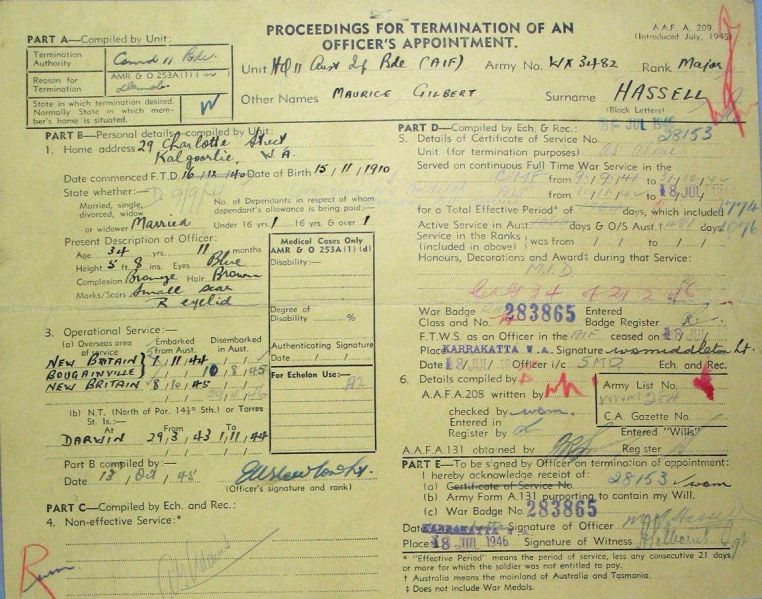 PROCEEDINGS FOR TERMINATION OF AN
OFFICER'S APPOINTMENT.
A.A.F. A. 209.
(Introduced July, 1945)
PART A—Compiled by Unit:
Termination
Authority
Comd 11 Bde.
Reason for
Termination
AMR & O 253A(1)
Demob.
State in which termination desired.
Normally State in which mem-
ber's home is situated.
W
Unit HQ 11 Aust Inf Bde (AIF) Army No. WX 3482 Rank Major
Other Names MAURICE GILBERT Surname HASSELL
(Block Letters)
PART B—Personal details—compiled by Unit:
1. Home address 29 Charlotte Street
Kalgoorlie, W.A.
Date commenced F.T.D. 16/12/40 Date of Birth 15/11/1910
State whether:—
Married, single,
divorced, widow
or widower Married
No. of Dependants in respect of whom
dependant's allowance is being paid:—
Under 16 yrs. 1 16 yrs. & over 1
Present Description of Officer:
Age 34 yrs. 11 months
Height 5 ft 8 ins. Eyes Blue
Complexion Bronze Hair Brown
Marks/Scars Small scar
R eyelid
Medical Cases Only
AMR & O 253A (1) (d)
Disability:—
Degree of
Disability %
Authenticating Signature
Date / /
For Echelon Use:—
A2
3. Operational Service:—
(a) Overseas area
of service
Embarked
from Aust.
Disembarked
in Aust.
NEW BRITAIN 1 / 11 / 44 / /
BOUGAINVILLE / / 10 / 8 / 45
NEW BRITAIN 8 / 10 / 45 / /
(b) N.T. (North of Par. 14½° Sth.) or Torres
St. Is.:—
At From To
DARWIN 29/3/43 1/11/44
Part B compiled by:—
Date 13 / Oct / 45
(Officer's signature and rank)
PART C—Compiled by Ech. and Rec.:
4. Non-effective Service:*
R
PART D—Compiled by Ech. & Rec.:
JUL 1946
5. Details of Certificate of Service No. 28153
Unit (for termination purposes)
Served on continuous Full Time War Service in the
from to
from to 18 JUL
for a Total Effective Period* of days, which included 1774
Active Service in Aust. days & O/S Aust.† days
Service in the Ranks
(included in above) } was from / / to / /
Honours, Decorations and Award‡ during that Service:
M.I.D.
War Badge
Class and No. A 283865 Entered
Badge Register
F.T.W.S. as an Officer in the AIF ceased on 18 JUL
Place KARRAKATTA W.A. Signature wsmiddleton Lt.
Date 18 JUL Officer i/c S.M.D. Ech. and Rec.
6. Details compiled by
A.A.F.A.208 written by
checked by wsm.
Entered in
Register by
Army List No.
C.A. Gazette No.
Entered "Wills"
A.A.F.A.131 obtained by Register
PART E—To be signed by Officer on termination of appointment:
I hereby acknowledge receipt of:
(a) Certificate of Service No. 28153 wsm
(b) Army Form A.131 purporting to contain my Will.
(c) War Badge No. 283865
Date KARRAKATTA W.A. Signature of Officer
Place 18 JUL 1946 Signature of Witness
* "Effective Period" means the period of service, less any consecutive 21 days
or more for which the soldier was not entitled to pay.
† Australia means the mainland of Australia and Tasmania.
‡ Does not include War Medals.